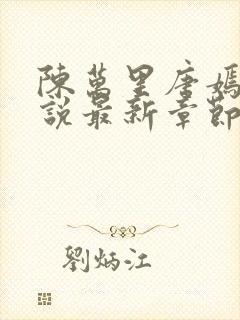 陳萬里唐嫣
說最新章節
劉炳江